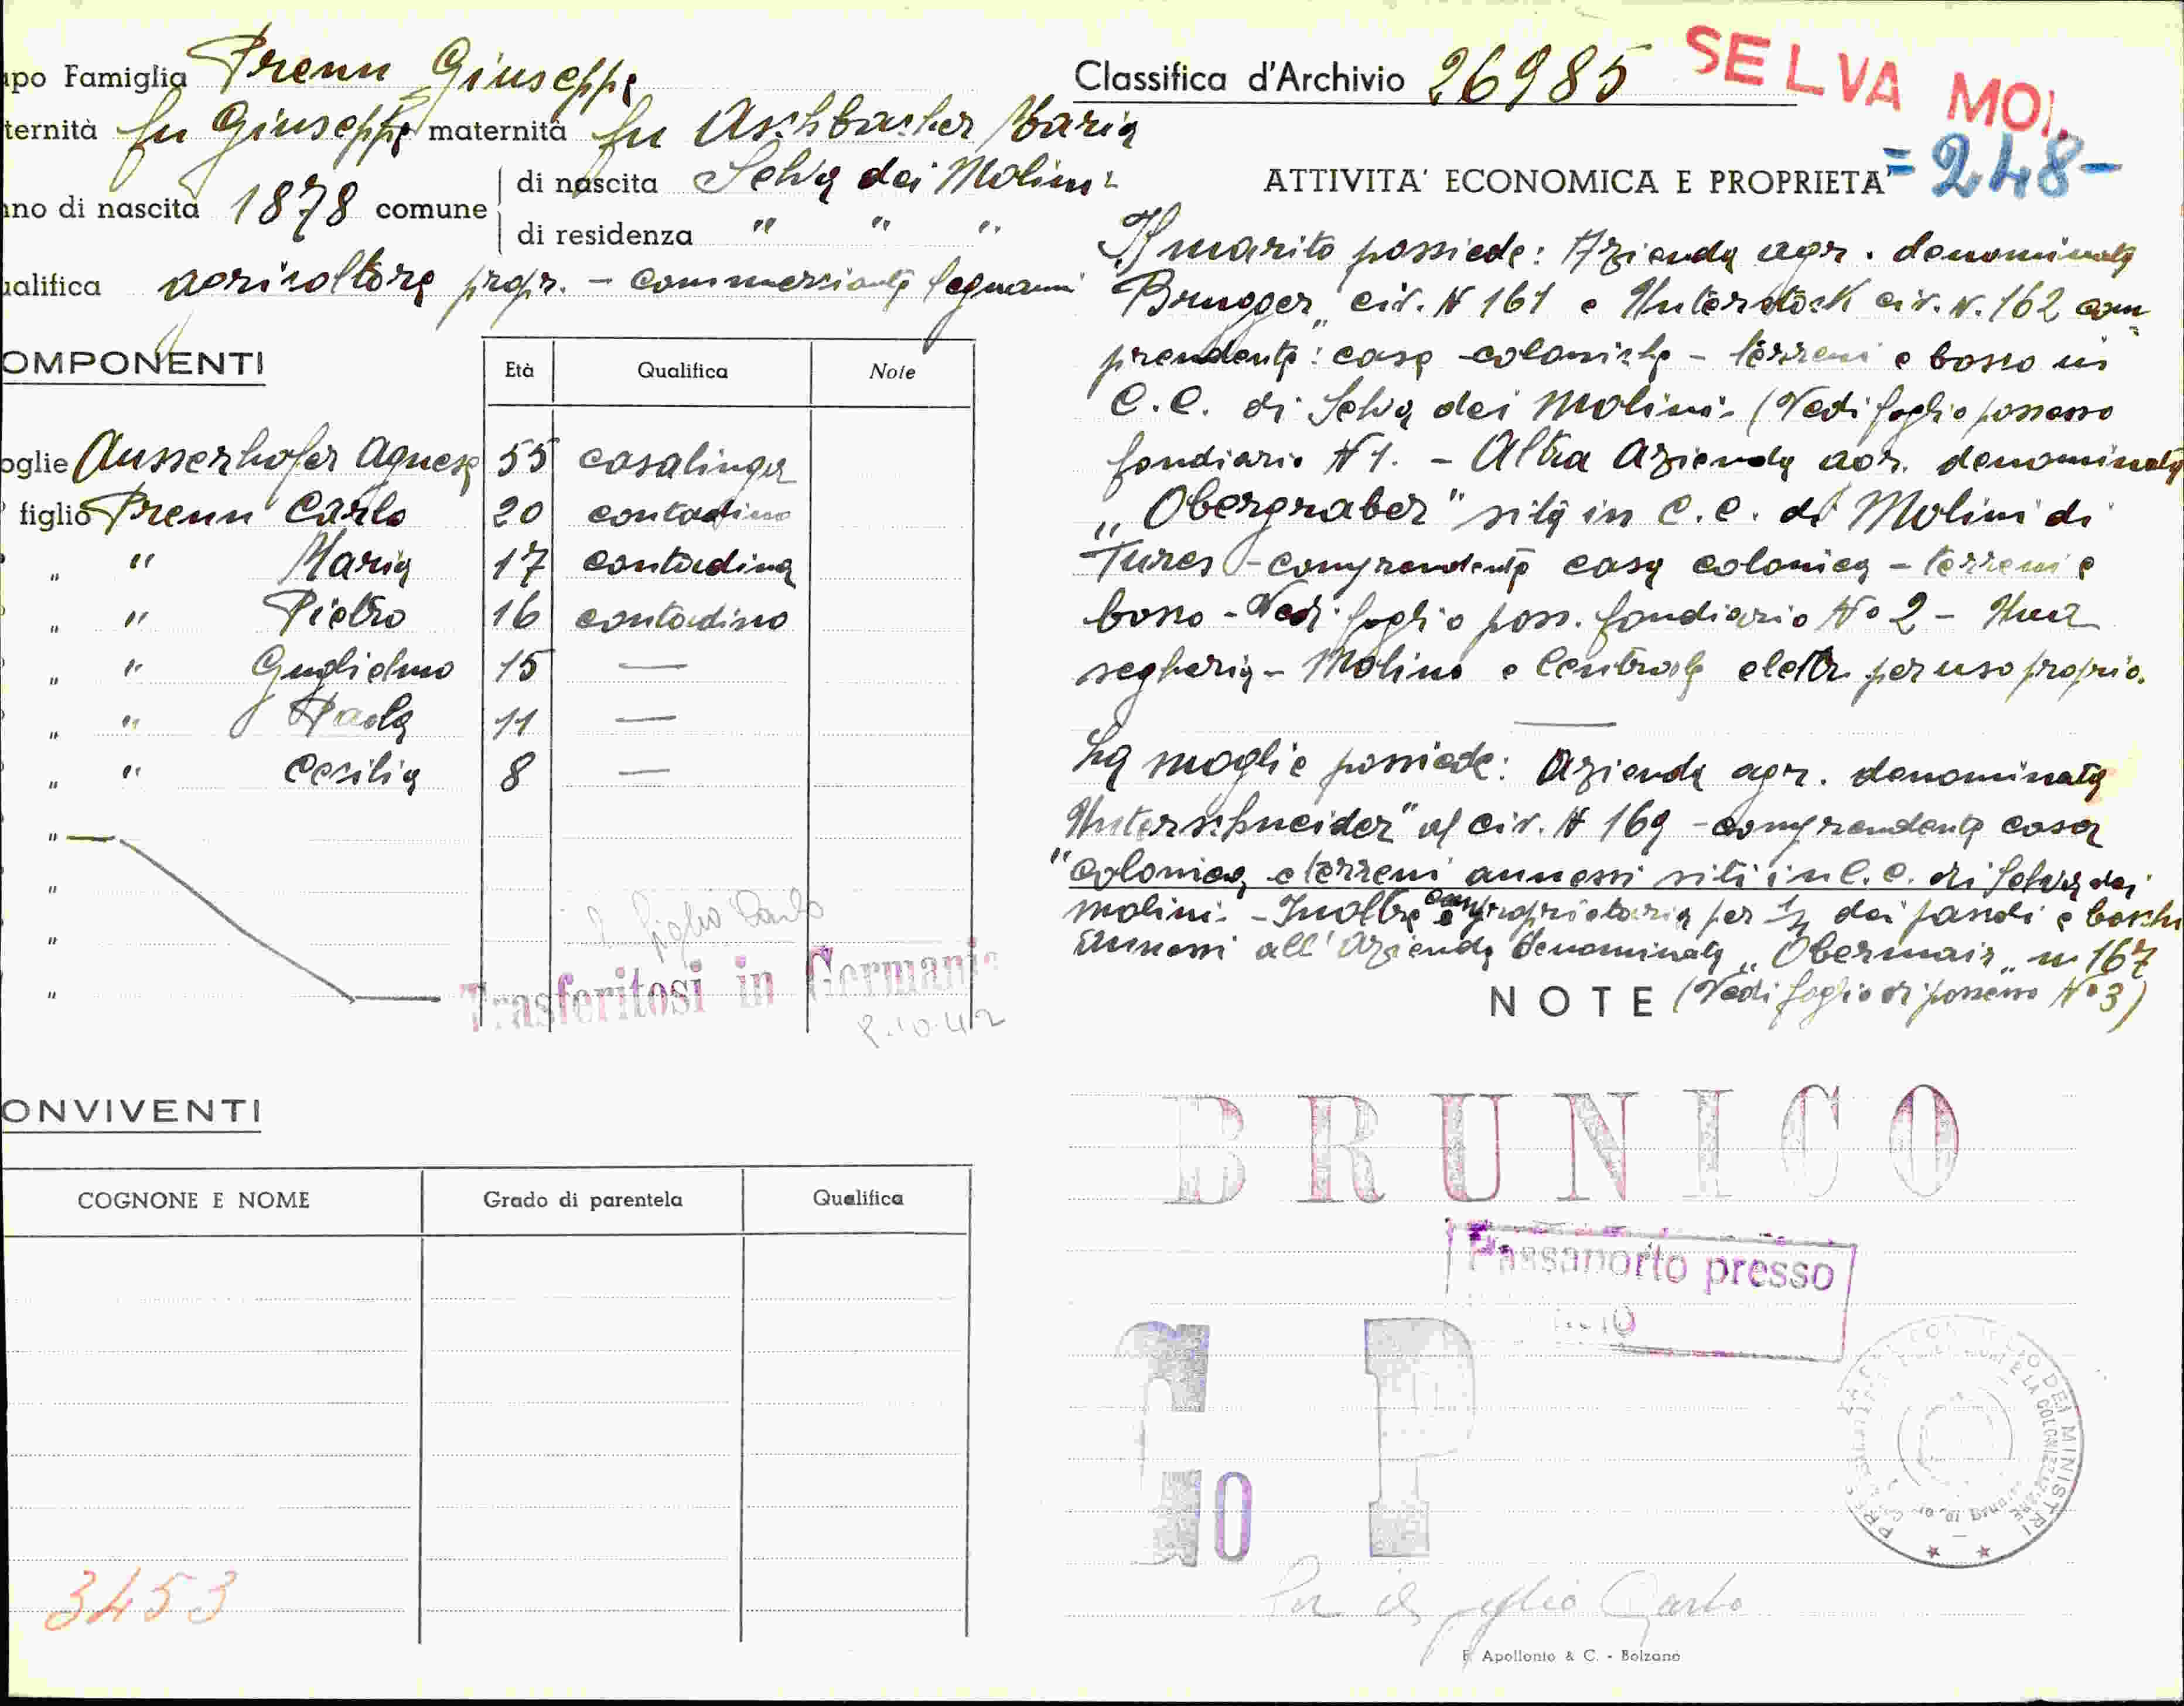 apo Famiglia Prenn Giuseppe
ternità fu Giuseppe maternità fu Aschbacher Maria
nno di nascita 1878 comune di nascita Selva dei Molini
di residenza " " "
ualifica agricoltore propr. - commerciante legnami
OMPONENTI
Età Qualifica Note
oglie Ausserhofer Agnese 55 casalinga
figlio Prenn Carlo 20 contadino
" " Maria 17 contadina
" " Pietro 16 contadino
" " Guglielmo 15 —
" " Paola 11 —
" " Cecilia 8 —
"
"
"
"
Il figlio Carlo
Trasferitosi in Germania
8.10.42
ONVIVENTI
COGNONE E NOME Grado di parentela Qualifica
3453
Classifica d'Archivio 26985
SELVA MOL.
=248-
ATTIVITA' ECONOMICA E PROPRIETA'
Il marito possiede: Azienda agr. denominata
"Brugger" civ. N 161 e Unterstock civ. N. 162 com=
prendente: case coloniche - terreni e bosco in
C.C. di Selva dei Molini - (Vedi foglio possesso
fondiario N 1. - Altra Azienda agr. denominata
"Obergraber" sita in C.C. di Molini di
Tures - comprendente casa colonica - terreni e
bosco - Vedi foglio poss. fondiario No 2 - Una
segheria - Molino e Centrale elettr. per uso proprio.
La moglie possiede: Azienda agr. denominata
"Unterschneider" al civ. N 169 - comprendente casa
colonica e terreni annessi siti in C.C. di Selva dei
Molini - Inoltre è comproprietaria per 1/2 dei fondi e boschi
annessi all'Azienda denominata "Obermair" n 167
NOTE (Vedi foglio di possesso No 3)
BRUNICO
Passaporto presso
G P
10
Per il figlio Carlo
F. Apollonio & C. - Bolzano